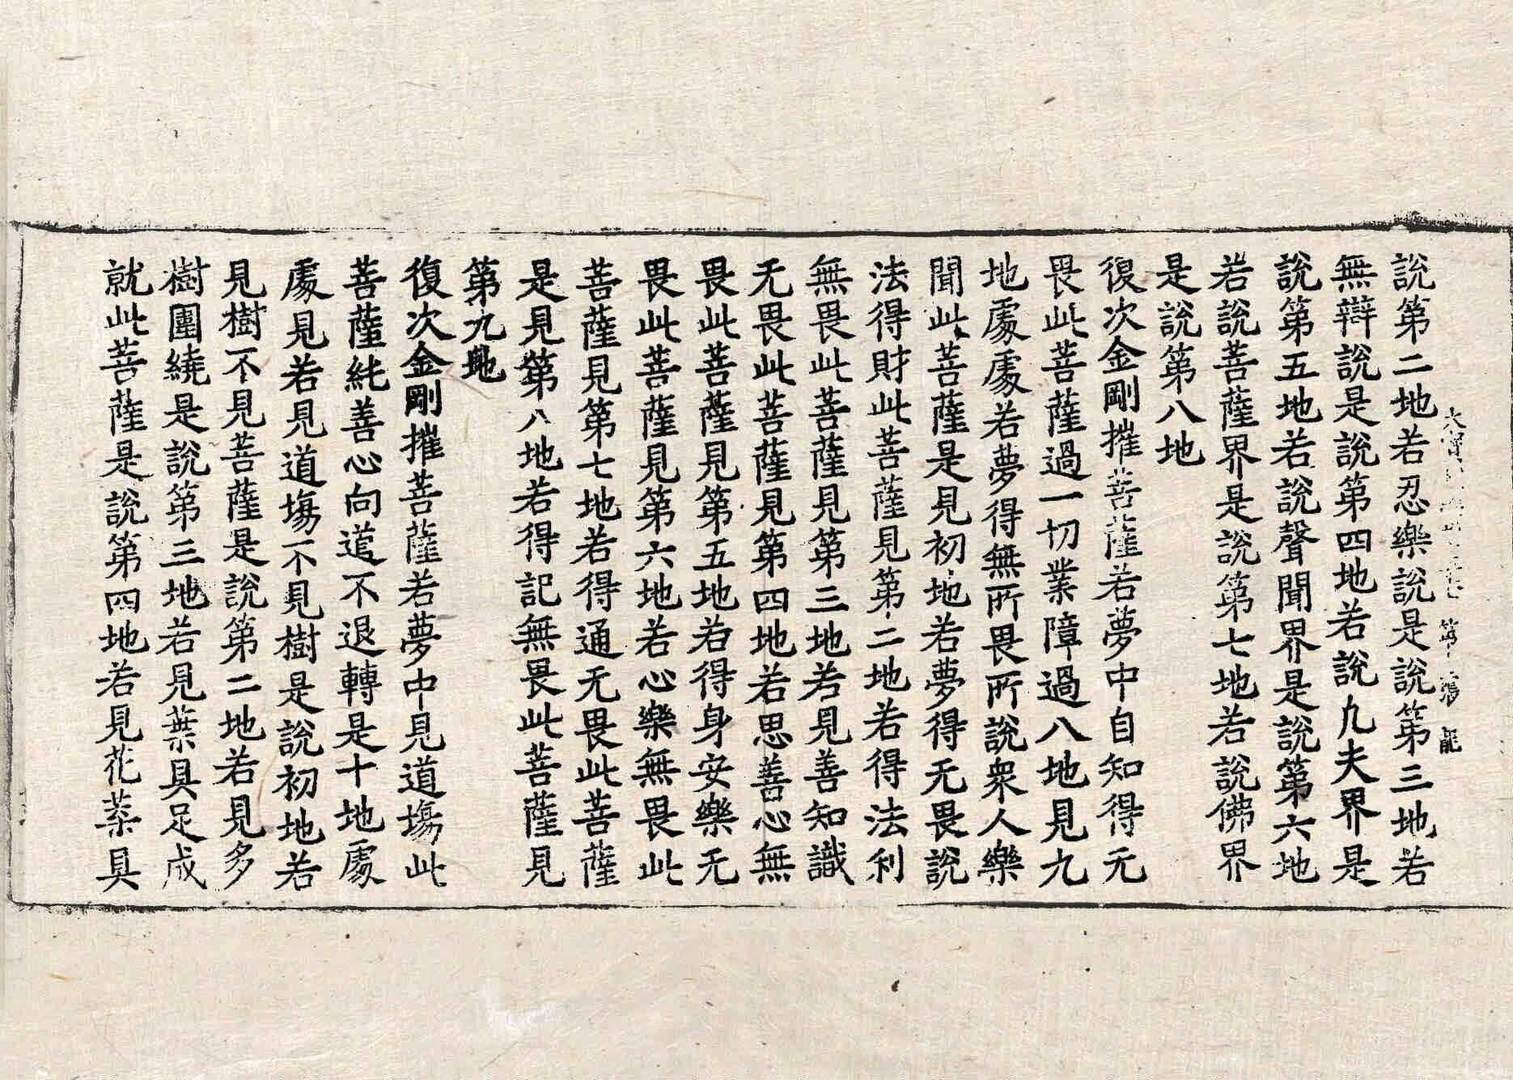 說第二地若忍樂說是說第三地若
無辯說是說第四地若說凢夫界是
說第五地若說聲聞界是說第六地
若說菩薩界是說第七地若說佛界
是說第八地
復次金剛摧菩薩若夢中自知得无
畏此菩薩過一切業障過八地見九
地處處若夢得無所畏所說衆人樂
聞此菩薩是見初地若夢得无畏說
法得財此菩薩見第二地若得法利
無畏此菩薩見第三地若見善知識
无畏此菩薩見第四地若思善心無
畏此菩薩見第五地若得身安樂无
畏此菩薩見第六地若心樂無畏此
菩薩見第七地若得通无畏此菩薩
是見第八地若得記無畏此菩薩見
第九地
復次金剛摧菩薩若夢中見道塲此
菩薩純善心向道不退轉是十地處
處見若見道塲不見樹是說初地若
見樹不見菩薩是說第二地若見多
樹圍繞是說第三地若見葉具足成
就此菩薩是說第四地若見花菓具